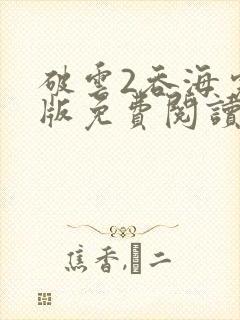 破雲2吞海完
版免費閱讀
焦香,�二